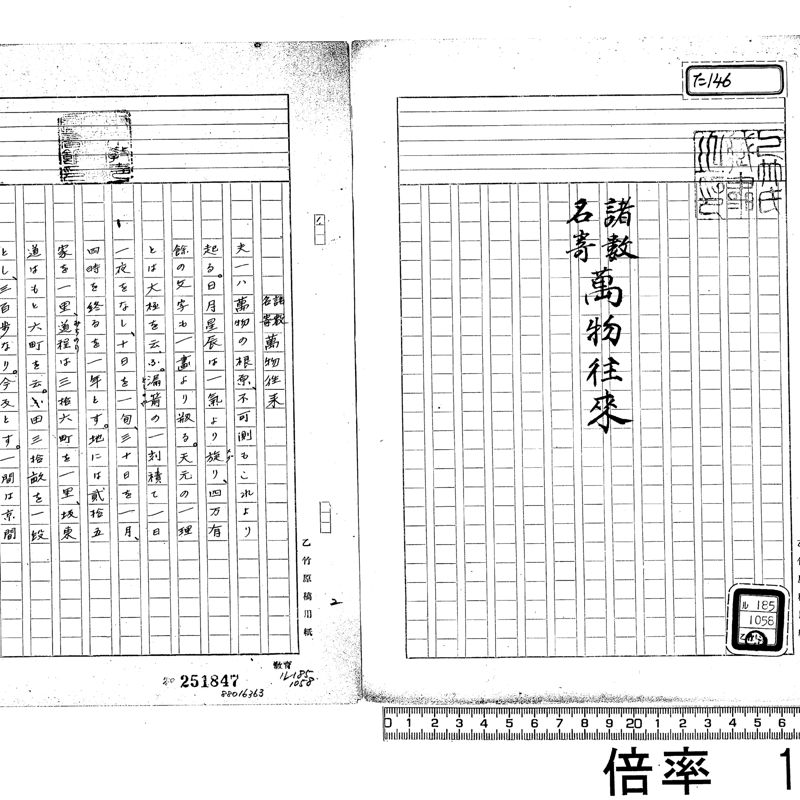 た146
諸數
名寄
萬物往來
ル 185
1058
諸數
名寄 萬物往来
夫一ハ萬物の根原、不可測もこれより
起る。日月星辰は一氣より旋り、四万有
餘の文字も一畫より級る。天元の一理
とは大極を云ふ。漏箭の一刻積て一日
一夜をなし、十日を一旬、三十日を一月、
四時を終るを一年とす。地には貳拾五
家を一里、道程は三拾六町を一里、坂東
道はもと六町を云。田三拾畝を一段
とし、三百歩なり。今反とす。一間は京間
乙竹原稿用紙
2
教育
ル185
1058
251847
88016363
0 1 2 3 4 5 6 7 8 9 20 1 2 3 4 5 6
倍率 1